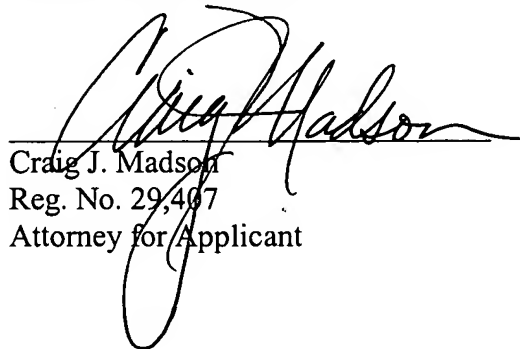 Craig J Madson
Craig J. Madson
Reg. No. 29,407
Attorney for Applicant